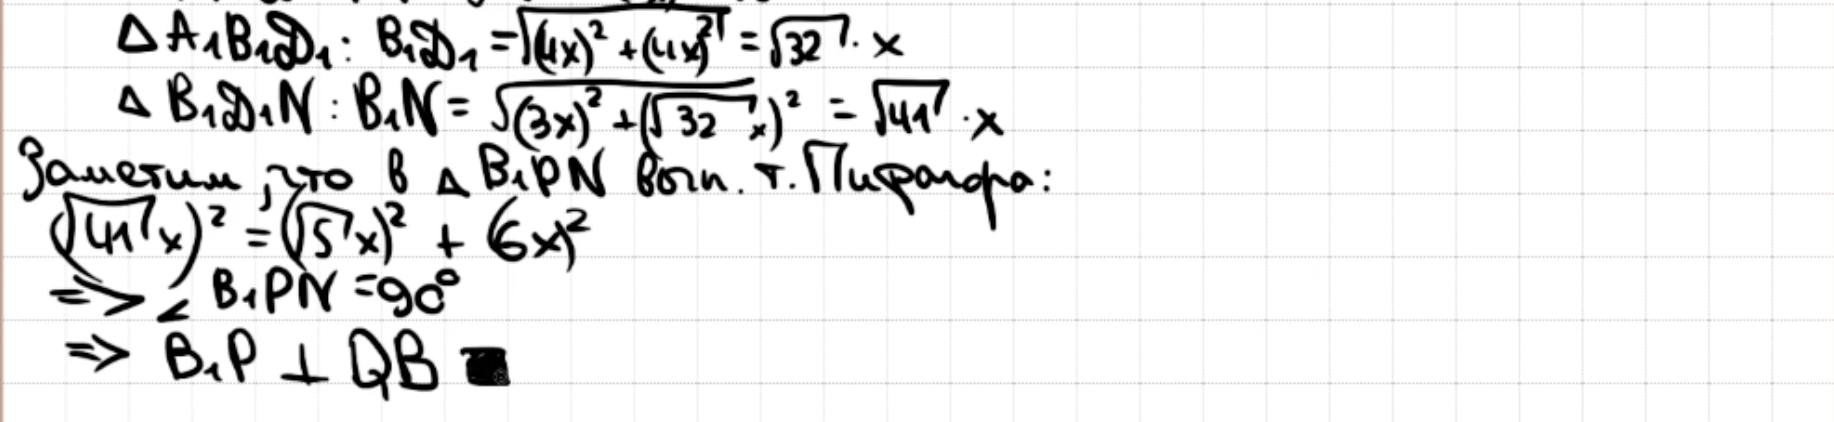 Δ A₁B₁D₁: B₁D₁ = √((4x)² + (4x)²) = √32 · x
Δ B₁D₁N: B₁N = √((3x)² + (√32 x)²) = √41 · x
Заметим, что в Δ B₁PN вып. т. Пифагора:
(√41 x)² = (√5 x)² + (6x)²
=> ∠ B₁PN = 90°
=> B₁P ⊥ QB ■